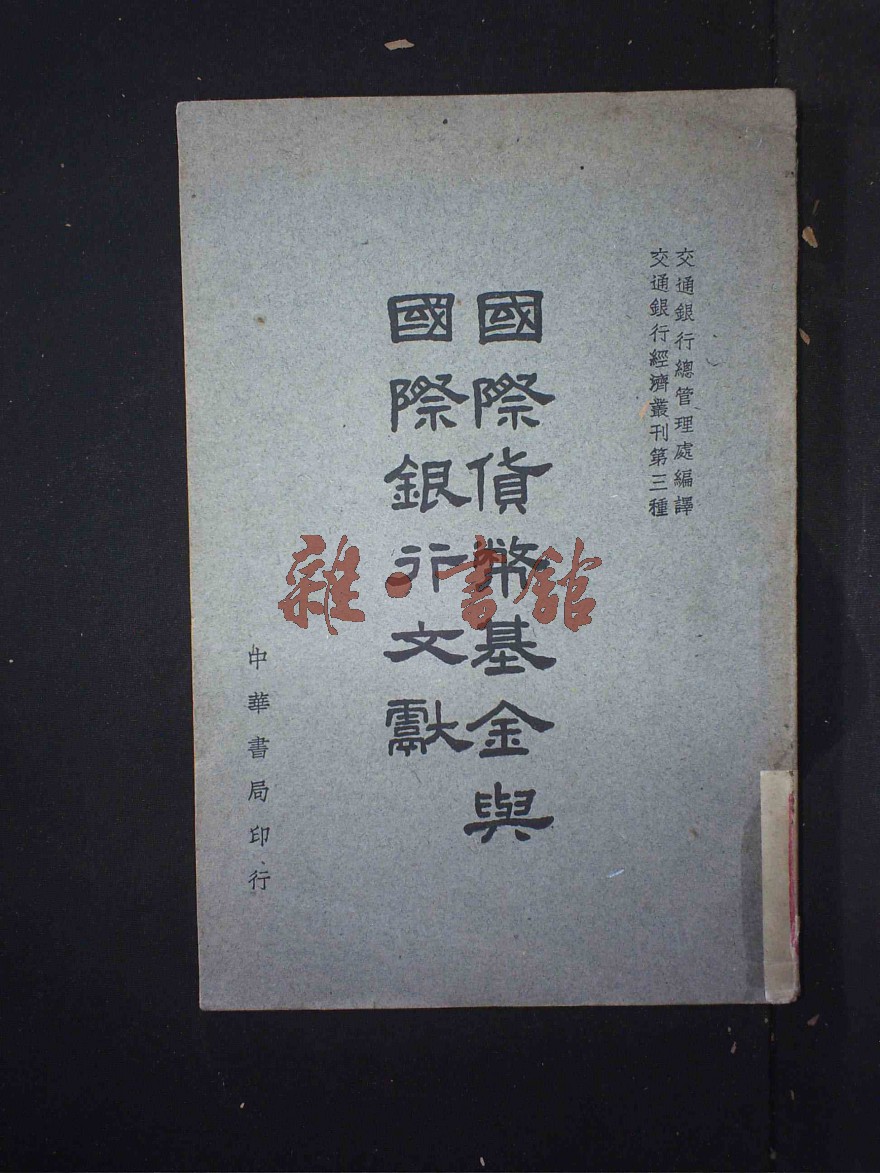 交通銀行總管理處編譯
交通銀行經濟叢刊第三種
國際貨幣基金與
國際銀行文獻
中華書局印行
雜·書館